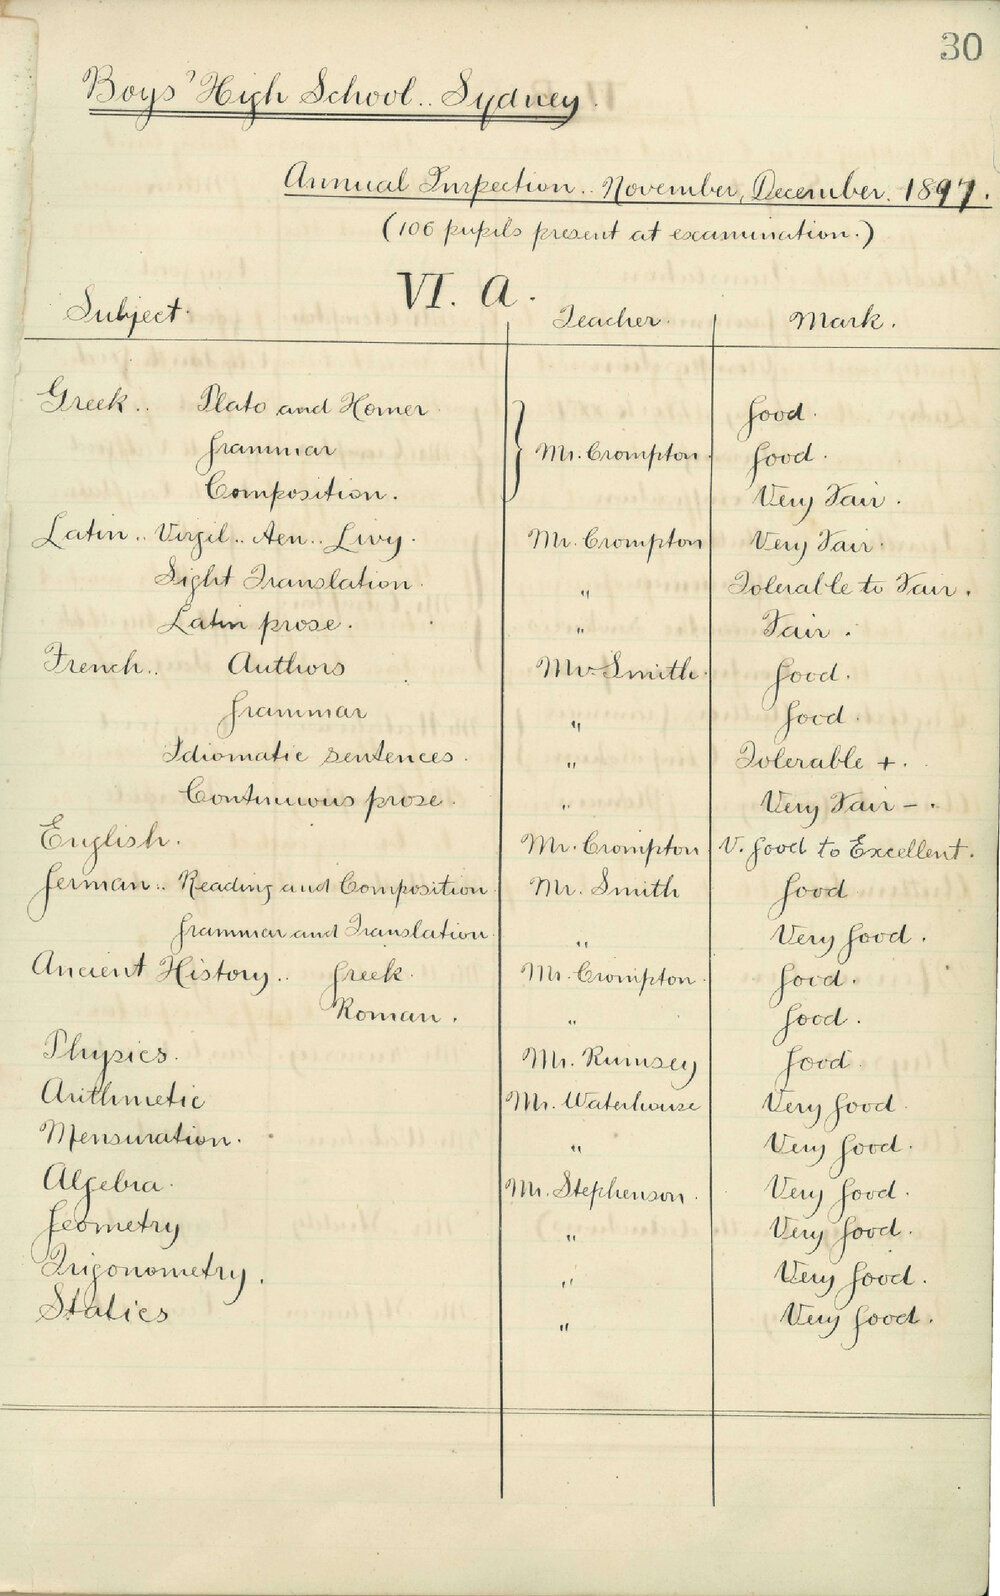 30
Boys' High School.. Sydney.
Annual Inspection.. November, December. 1897.
(106 pupils present at examination.)
VI. A.
Subject. Teacher. Mark.
Greek.. Plato and Homer. Good.
Grammar Mr. Crompton. Good.
Composition. Very Fair.
Latin.. Virgil.. Aen.. Livy. Mr. Crompton Very Fair.
Sight Translation. " Tolerable to Fair.
Latin prose. " Fair.
French.. Authors Mr. Smith. Good.
Grammar " Good.
Idiomatic sentences. " Tolerable +.
Continuous prose. " Very Fair -.
English. Mr. Crompton V. Good to Excellent.
German.. Reading and Composition. Mr. Smith Good
Grammar and Translation. " Very Good.
Ancient History.. Greek. Mr. Crompton. Good.
Roman. " Good.
Physics. Mr. Rumsey Good.
Arithmetic Mr. Waterhouse Very Good.
Mensuration. " Very Good.
Algebra. Mr. Stephenson. Very Good.
Geometry " Very Good.
Trigonometry. " Very Good.
Statics " Very Good.